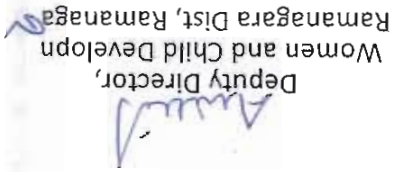 Deputy Director,
Women and Child Developn
Ramanagara Dist, Ramanaga